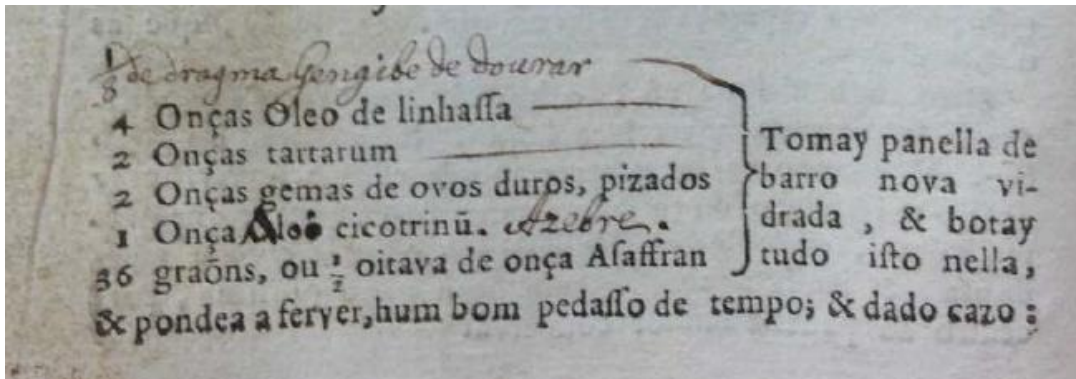 1/8 de dragma Gengibe de dourar
4 Onças Oleo de linhaſſa
2 Onças tartarum
2 Onças gemas de ovos duros, pizados
1 Onça Aloe cicotrinũ. Azebre.
36 graõns, ou 1/2 oitava de onça Aſaffran
Tomay panella de
barro nova vi-
drada, & botay
tudo iſto nella,
& pondea a ferver, hum bom pedaſſo de tempo; & dado cazo: